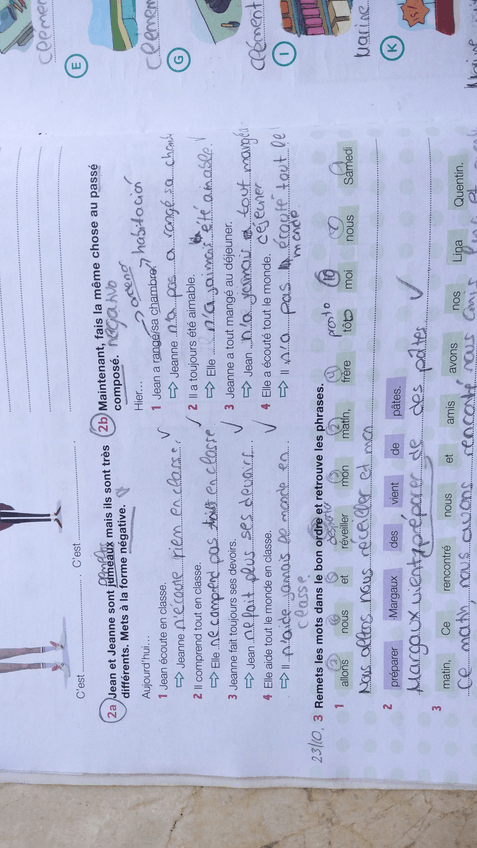 Clément
E
Clément
G
Clément
I
Marine
K
C'est ........ . C'est ........ .
2a Jean et Jeanne sont jumeaux mais ils sont très différents. Mets à la forme négative.
Aujourd'hui...
1 Jean écoute en classe.
⇨ Jeanne n'écoute rien en classe. ✓
2 Il comprend tout en classe.
⇨ Elle ne comprend pas tout en classe
3 Jeanne fait toujours ses devoirs.
⇨ Jean ne fait plus ses devoirs. ✓
4 Elle aide tout le monde en classe.
⇨ Il n'aide jamais le monde en classe
2b Maintenant, fais la même chose au passé composé. negativo
Hier...
habitación
1 Jean a rangé sa chambre.
⇨ Jeanne n'a pas a rangé sa chamb
2 Il a toujours été aimable.
⇨ Elle n'a jaimais été aimable.
3 Jeanne a tout mangé au déjeuner.
⇨ Jean n'a tout mangé
déjeuner
4 Elle a écouté tout le monde.
⇨ Il n'a pas écouté tout le monde
23/10. 3 Remets les mots dans le bon ordre et retrouve les phrases.
pronto
1 allons nous et réveiller mon matin, frère tôt moi nous Samedi
Nous allons nous réveiller et mon
2 préparer Margaux des vient de pâtes.
Margaux vient préparer de des pâtes ✓
3 matin, Ce rencontré nous et amis avons nos Lipa Quentin.
Ce matin nous avons rencontré nous amis